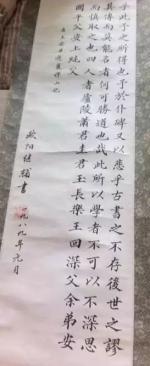 乎此予之所得也予於仆碑又以悲乎古書之不存後世之謬
其傳而莫能名者何可勝道也哉此所以學者不可以不深思
而慎取之也四人者廬陵蕭君圭君玉長樂王回深父余弟安
國平父安上純父
歐陽継輔書
一九八九年元月